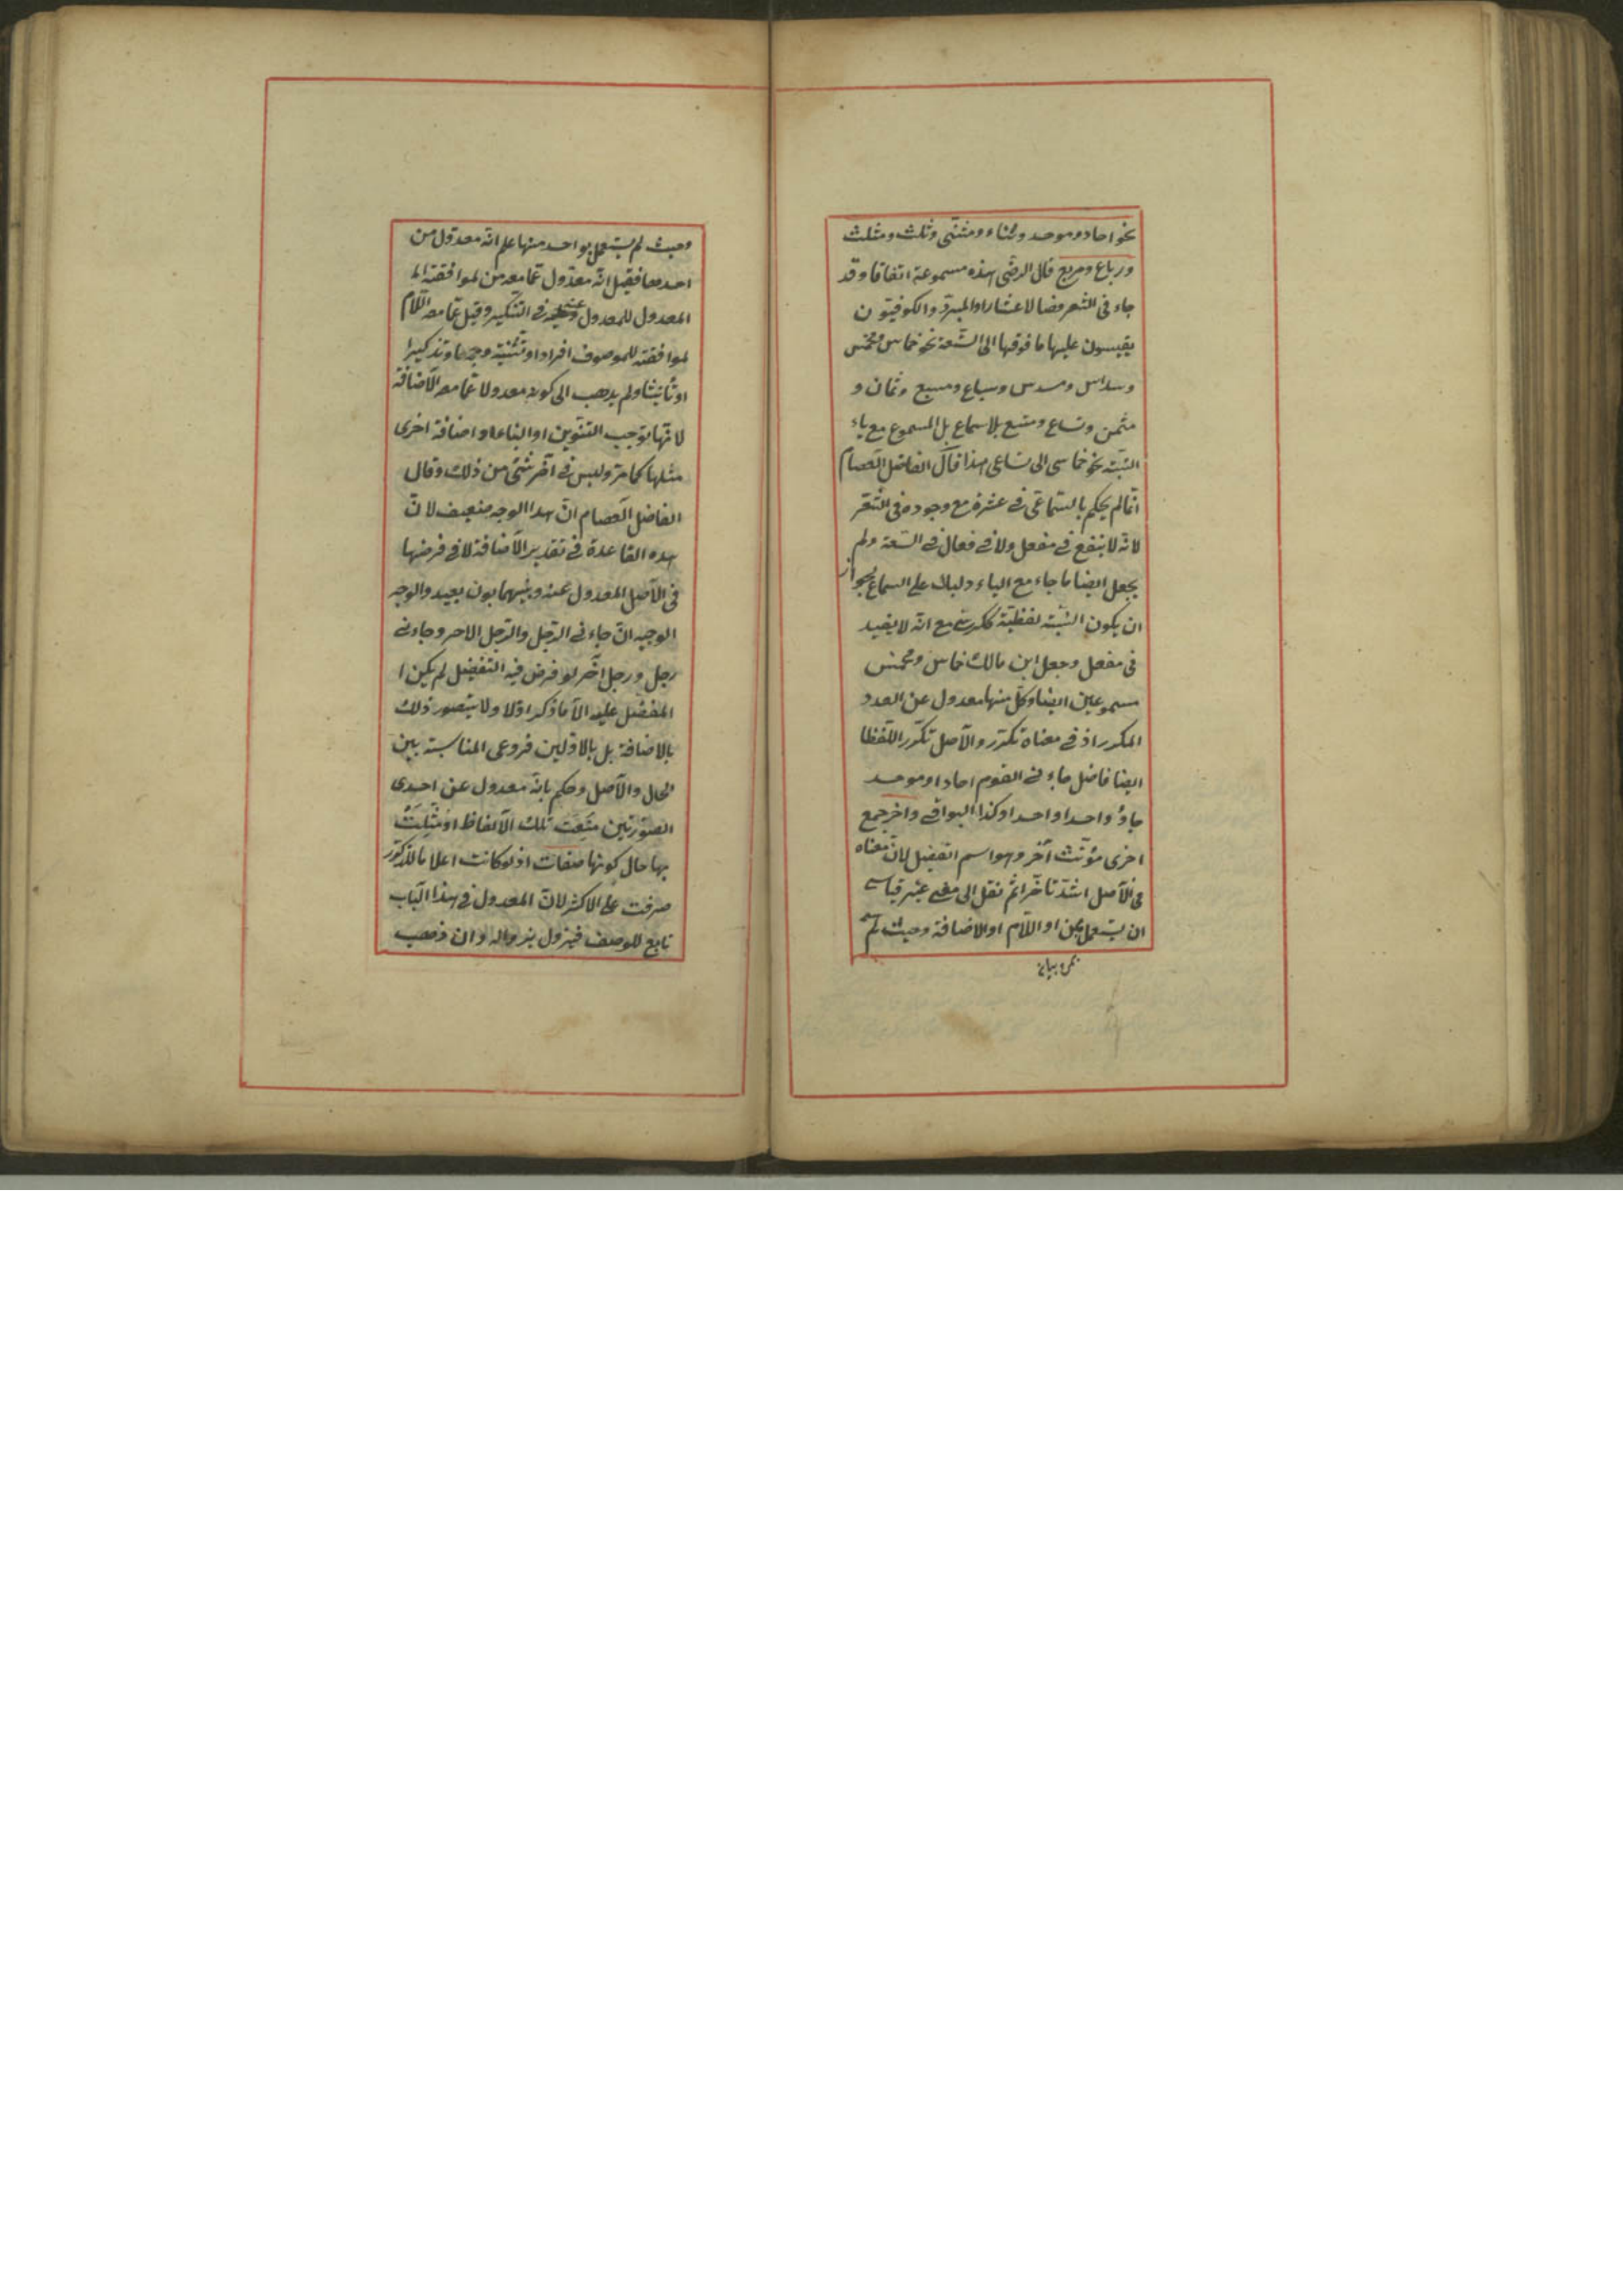 نحو احاد وموحد وثناء ومثنى وثلث ومثلث
ورباع ومربع قال الرضى هذه مسموعة اتفاقا وقد
جاء فى الشعر فضالا عشارا والمبرد والكوفيون
يقيسون عليها ما فوقها الى التسعة نحو خماس ومخمس
وسداس ومسدس وسباع ومسبع وثمان و
مثمن وتساع ومتسع بلا سماع بل المسموع مع ياء
النسبة نحو خماسى الى تساعى هذا قال الفاضل العصام
انما لم يحكم بالسماعى فى عشرة مع وجوده فى الشعر
لانه لا ينفع فى مفعل ولا فى فعال فى السعة ولم
يجعل ايضا ما جاء مع الياء دليلا على السماع لجواز
ان يكون النسبة لفظية ككرسى مع انه لا يفيد
فى مفعل وجعل ابن مالك خماس ومخمس
مسموعين ايضا وكل منها معدول عن العدد
المكرر اذ فى معناه تكرر والاصل تكرر اللفظ
ايضا فاصل جاءنى القوم احاد او موحد
جاؤ واحدا واحدا وكذا البواقى واخر جمع
اخرى مؤنث آخر وهو اسم التفضيل لان معناه
فى الاصل اشد تأخرا ثم نقل الى معنى غير قياسه
ان يستعمل بمن او اللام او الاضافة وحيث لم
وحيث لم يستعمل بواحد منها علم انه معدول من
احدها فقيل انه معدول عما معه من لموافقته
المعدول للمعدول عنه فى التنكير وقيل عما معه اللام
لموافقته للموصوف افرادا وتثنية وجمعا وتذكيرا
او تأنيثا ولم يذهب الى كونه معدولا عما معه الاضافة
لانها توجب التنوين او البناء او اضافة اخرى
مثلها كما مر وليس فى آخر شئ من ذلك وقال
الفاضل العصام ان هذا الوجه ضعيف لان
هذه القاعدة فى تقدير الاضافة لا فى فرضها
فى الاصل المعدول عنه وبينهما بون بعيد والوجه
الوجيه ان جاءنى الرجل والرجل الاخر وجاءنى
رجل ورجل آخر لو فرض فيه التفضيل لم يكن
المفضل عليه الا ما ذكر اولا ولا يتصور ذلك
بالاضافة بل بالاولين فروعى المناسبة بين
الحال والاصل وحكم بانه معدول عن احدى
الصورتين منعت تلك الالفاظ
بها حال كونها صفات اذ لو كانت اعلاما للذكور
صرفت على الاكثر لان المعدول فى هذا الباب
تابع للوصف فيزول بزواله وان ذهب